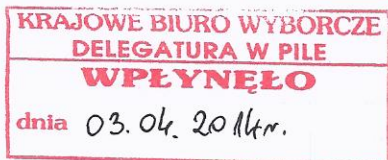 KRAJOWE BIURO WYBORCZE
DELEGATURA W PILE
WPŁYNĘŁO
dnia 03.04.2014r.